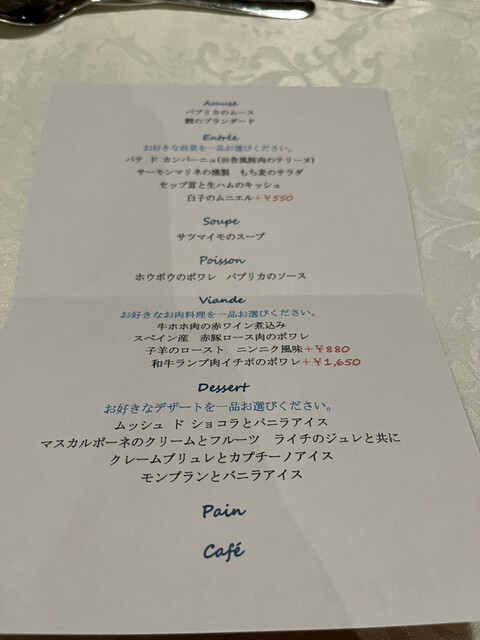 Amuse
パプリカのムース
鱈のブランダード
Entrée
お好きな前菜を一品お選びください。
パテ ド カンパーニュ(田舎風豚肉のテリーヌ)
サーモンマリネの燻製 もち麦のサラダ
セップ茸と生ハムのキッシュ
白子のムニエル+￥550
Soupe
サツマイモのスープ
Poisson
ホウボウのポワレ パプリカのソース
Viande
お好きなお肉料理を一品お選びください。
牛ホホ肉の赤ワイン煮込み
スペイン産 赤豚ロース肉のポワレ
子羊のロースト ニンニク風味+￥880
和牛ランプ肉イチボのポワレ+￥1,650
Dessert
お好きなデザートを一品お選びください。
ムッシュ ド ショコラとバニラアイス
マスカルポーネのクリームとフルーツ ライチのジュレと共に
クレームブリュレとカプチーノアイス
モンブランとバニラアイス
Pain
Café